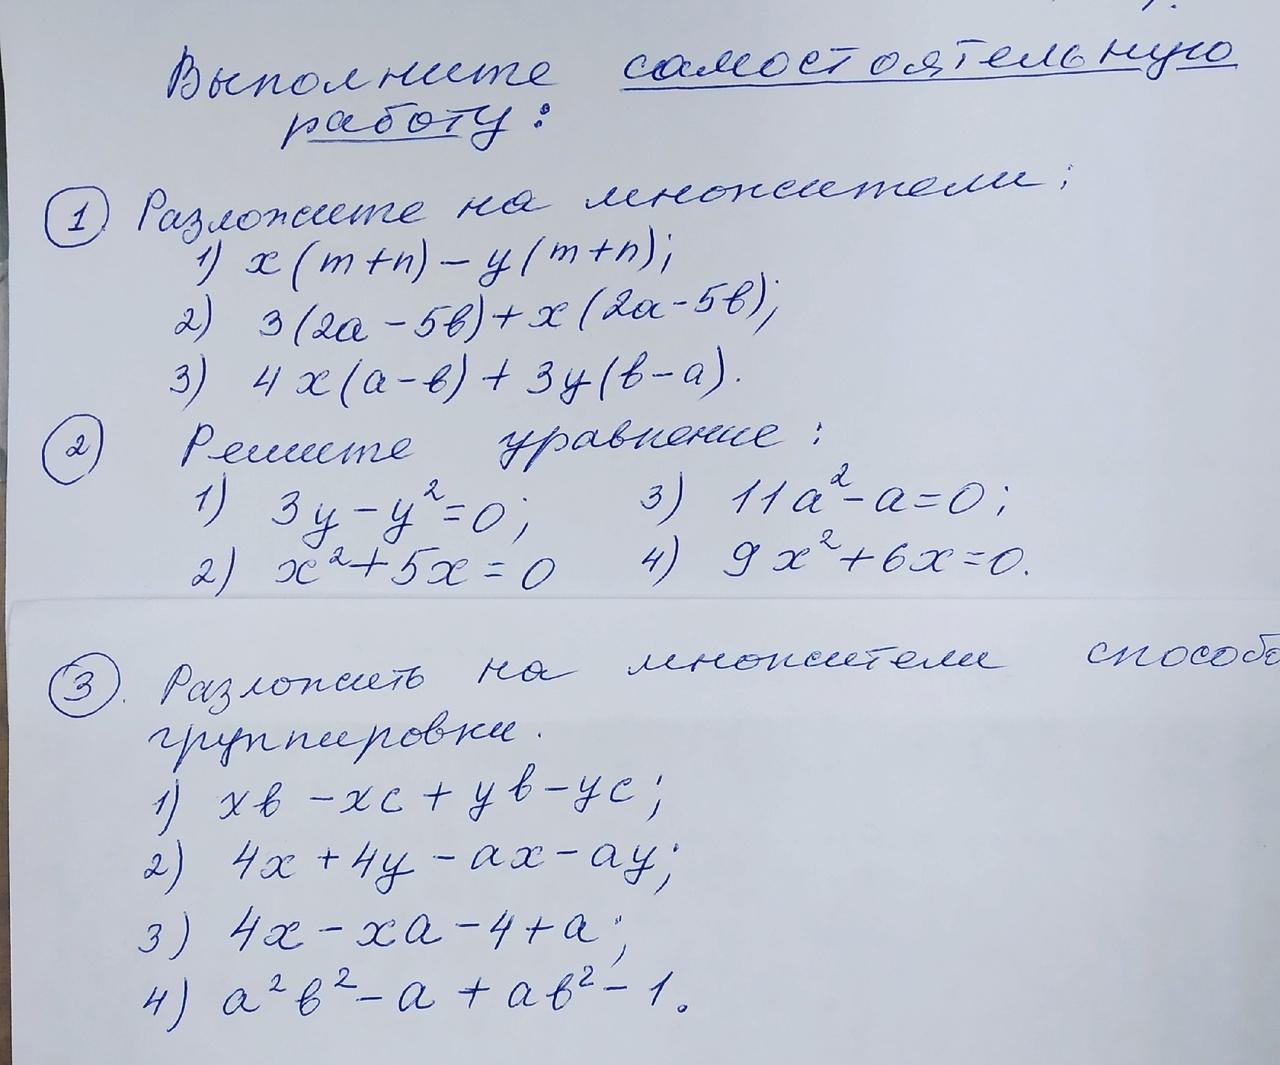 Выполните самостоятельную
работу:
1 Разложите на множители:
1) x(m+n)-y(m+n);
2) 3(2a-5b)+x(2a-5b);
3) 4x(a-b)+3y(b-a).
2 Решите уравнение:
1) 3y-y²=0; 3) 11a²-a=0;
2) x²+5x=0 4) 9x²+6x=0.
3. Разложить на множители способо
группировки.
1) xb-xc+yb-yc;
2) 4x+4y-ax-ay;
3) 4x-xa-4+a;
4) a²b²-a+ab²-1.